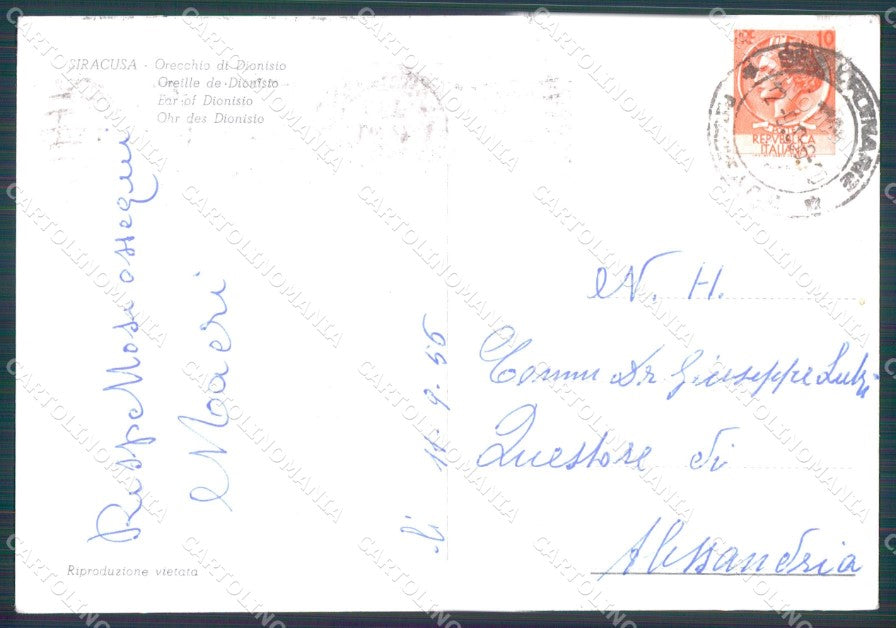 SIRACUSA - Orecchio di Dionisio
Oreille de Dionisio
Ear of Dionisio
Ohr des Dionisio
10
REPVBBLICA
ITALIANA
N. H.
Comm Dr Giuseppe
Questore di
Alessandria
Rispettosi ossequi
Macrì
li 11-9-55
Riproduzione vietata
CARTOLINOMANIA